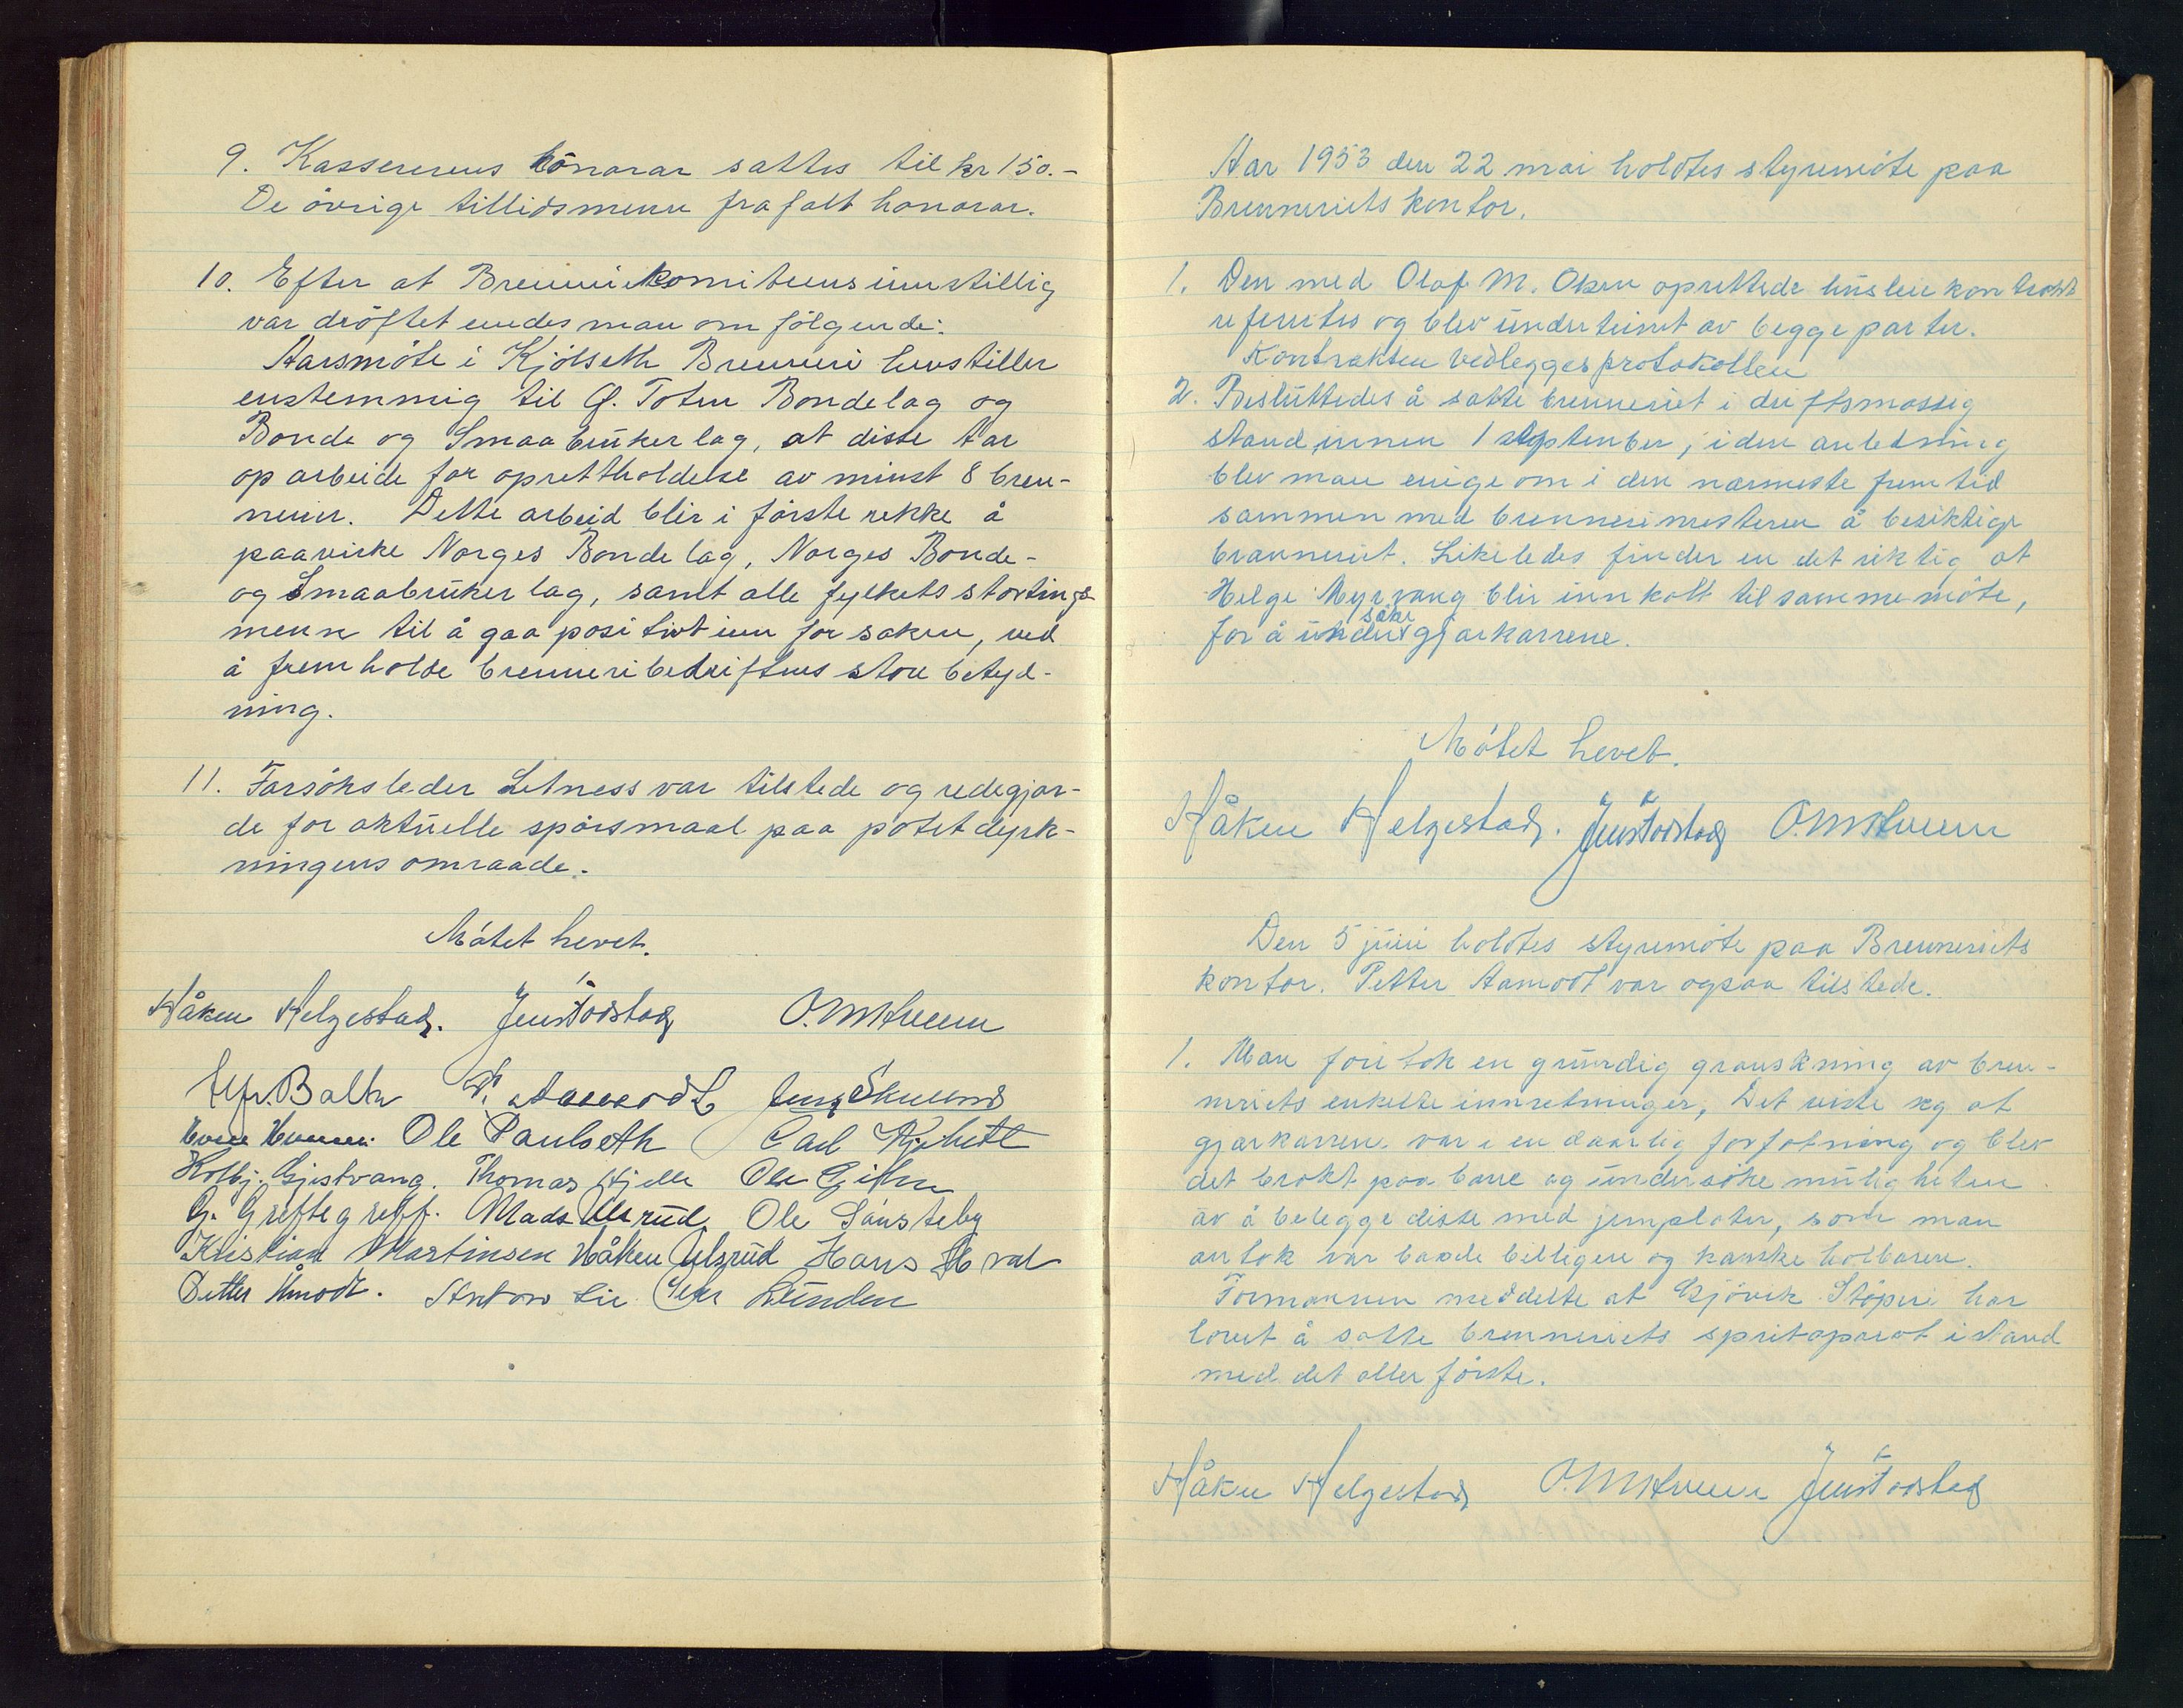 9. Kassererens hönorar sattes til kr 150.-
De övrige tillidsmenn frafalt honorar.
10. Efter at Brennerikomiteens innstillig
var dröftet enedes man om følgende:
Aarsmöte i Kjölseth Brenneri henstiller
enstemmig til Ø. Toten Bondelag og
Bonde og Smaabrukerlag, at disse tar
op arbeide for oprettholdelse av minst 8 bren-
nerier. Dette arbeid blir i förste rekke å
paavirke Norges Bondelag, Norges Bonde-
og Smaabrukerlag, samt alle fylkets stortings
menn til å gaa positivt inn for saken, ved
å fremholde brenneribedriftens store betyd-
ning.
11. Forsöksleder Letness var tilstede og redegjor-
de for aktuelle spörsmaal paa potetdyrk-
ningens omraade.
Mötet hevet.
Håken Helgestad. Jens Torstad O.M. Hveem
Alfr. Balke P. Aamodt Jens Skumd
Ole Paulseth Carl
Kolbj. Gjestvang. Thomas Hjelle Ole Gihle
G. Greftegreff. Mads Ulsrud Ole Sönsteby
Kristian Martinsen Håken Ulsrud Hans Hval
Petter Åmodt. Anton Lie Peder Lunden
Aar 1953 den 22 mai holdtes styremöte paa
Brenneriets kontor.
1. Den med Olaf M. Olsen oprettede husleiekontrakt
refereertes og blev undertegnet av begge parter.
Kontrakten vedlegges protokollen
2. Besluttedes å sette brenneriet i driftsmessig
stand innen 1 september, i den anledning
blev man enige om i den nærmeste fremtid
sammen med brennerimesteren å besiktige
brænneriet. Likeledes finder en det riktig at
Helge Myrvang blir innkalt til samme möte,
for å undersöke gjærkarrene.
Mötet hevet.
Håken Helgestad. Jens Torstad O.M. Hveem
Den 5 juni holdtes styremöte paa Brenneriets
kontor. Petter Aamodt var ogsaa tilstede.
1. Man foretok en grundig granskning av bren-
neriets enkelte innretninger, Det viste seg at
gjærkarrene var i en daarlig forfatning og blev
det brakt paa bane og undersöke muligheten
av å belegge disse med jernplater, som man
antok var baade billigere og kanske holbarere.
Formannen meddelte at Gjövik Stöperi har
lovet å sette brenneriets spritaparat i stand
med det aller förste.
Håken Helgestad O.M. Hveem Jens Torstad